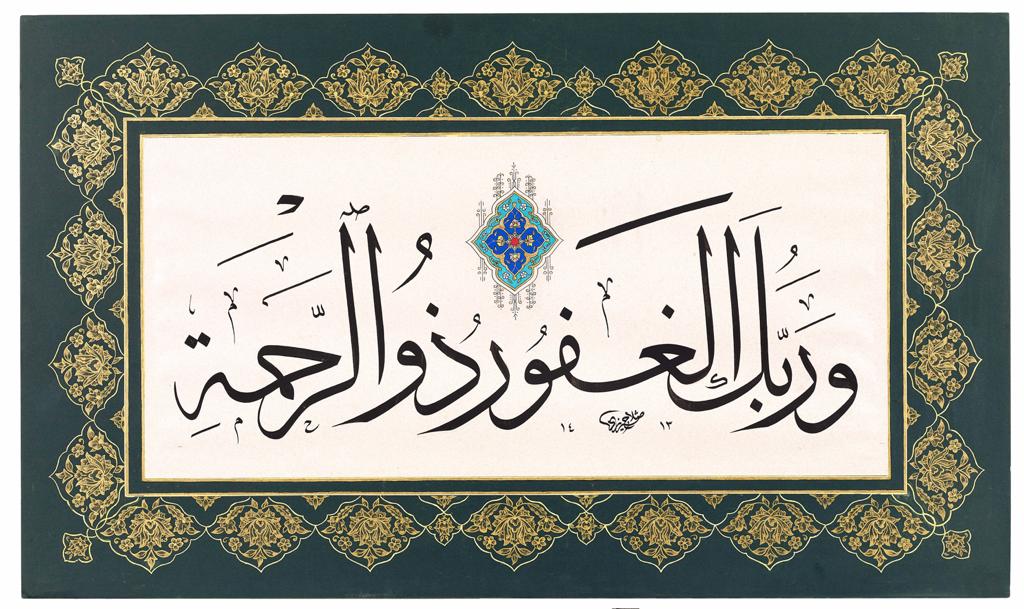 وَرَبُّكَ الْغَفُورُ ذُو الرَّحْمَةِ
١٣ ١٤